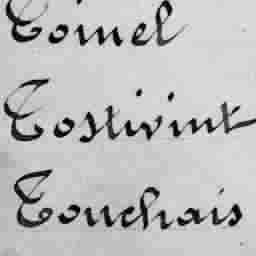 Toinel
Tostivint
Touchais